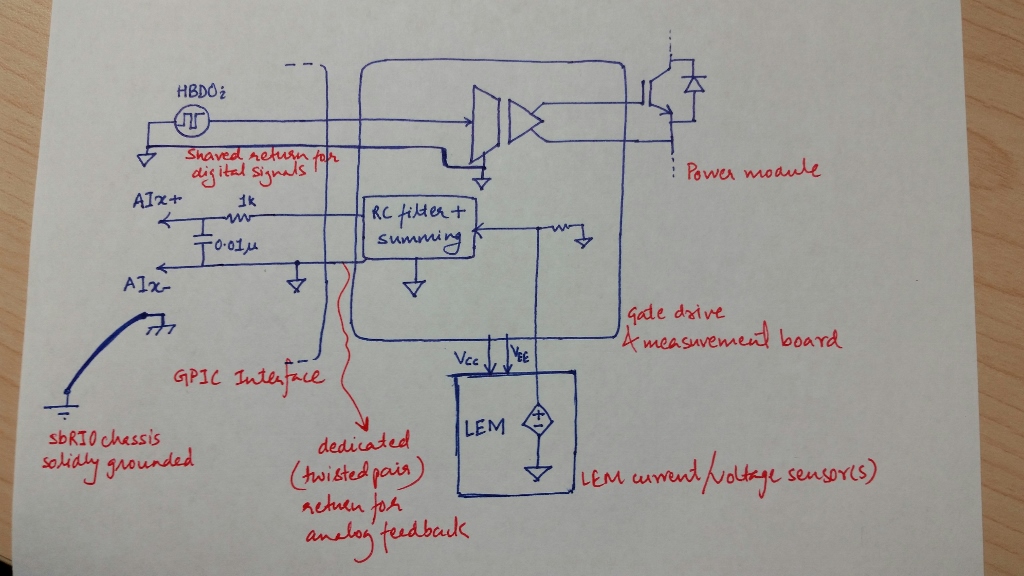 HBDOi
shared return for
digital signals
Power module
AIx+
1k
RC filter +
summing
0.01μ
AIx-
gate drive
& measurement board
VCC
VEE
GPIC Interface
LEM
sbRIO chassis
solidly grounded
dedicated
(twisted pair)
return for
analog feedback
LEM current/voltage sensor(s)
+
-